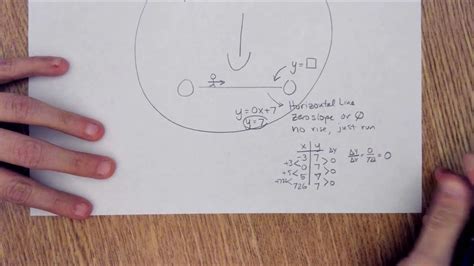 y = □
y = 0x + 7
y = 7
Horizontal Line
zero slope or ∅
no rise, just run
x | y ΔY
-3 | 7 >0
+3< 0 | 7 >0
+5< 5 | 7 >0
726 | 7
= 0